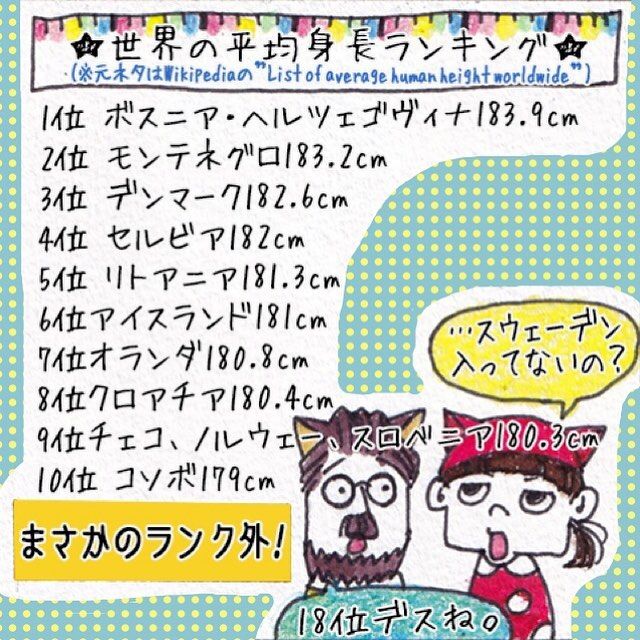 ★世界の平均身長ランキング★
(※元ネタはWikipediaの"List of average human height worldwide")
1位 ボスニア・ヘルツェゴヴィナ183.9cm
2位 モンテネグロ183.2cm
3位 デンマーク182.6cm
4位 セルビア182cm
5位 リトアニア181.3cm
6位アイスランド181cm
7位オランダ180.8cm
8位クロアチア180.4cm
9位チェコ、ノルウェー、スロベニア180.3cm
10位 コソボ179cm
…スウェーデン
入ってないの?
まさかのランク外!
18位デスね。